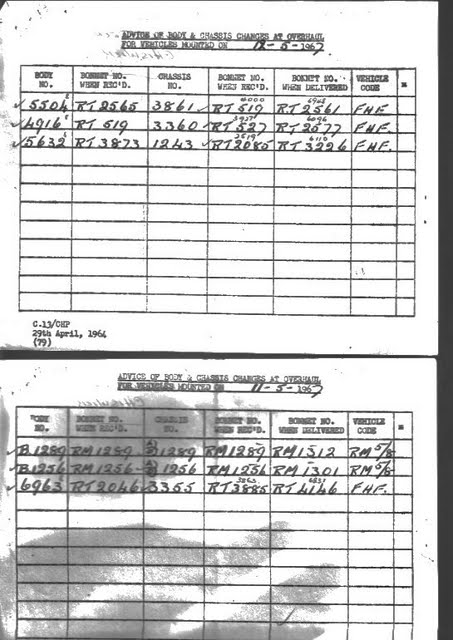 ADVICE OF BODY & CHASSIS CHANGES AT OVERHAUL
FOR VEHICLES MOUNTED ON 12-5-1967
BODY NO. BONNET NO. WHEN REC'D. CHASSIS NO. BONNET NO. WHEN REC'D. BONNET NO. WHEN DELIVERED VEHICLE CODE
5504 RT2565 3861 RT519 RT2561 FHF
4916 RT519 3360 RT527 RT2577 FHF.
5632 RT3873 1243 RT2085 RT3226 FHF.
C.13/CHP
29th April, 1964
(79)
ADVICE OF BODY & CHASSIS CHANGES AT OVERHAUL
FOR VEHICLES MOUNTED ON 11-5-1967
BODY NO. BONNET NO. WHEN REC'D. CHASSIS NO. BONNET NO. WHEN REC'D. BONNET NO. WHEN DELIVERED VEHICLE CODE
B1289 RM1289 1289 RM1289 RM1312 RM5/8
B1256 RM1256 1256 RM1256 RM1301 RM5/8
6963 RT2046 3355 RT3885 RT4146 FHF.